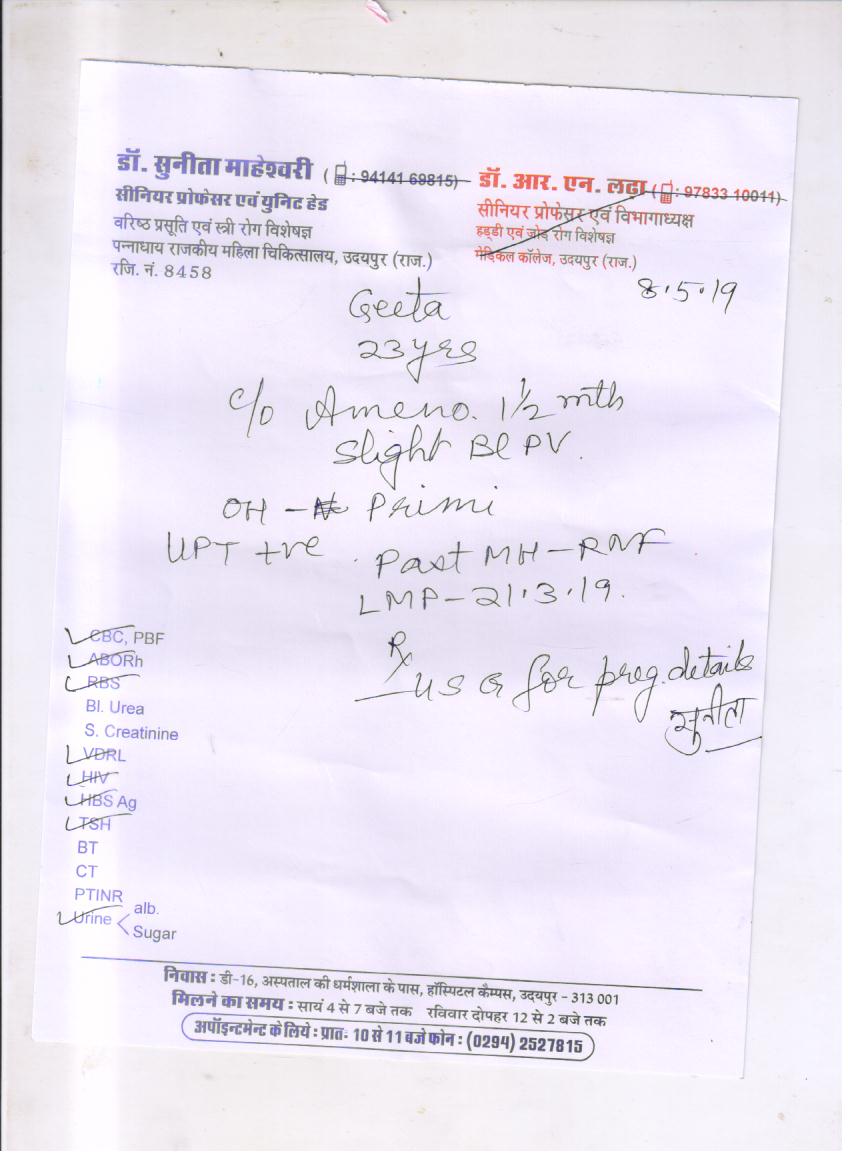 डॉ. सुनीता माहेश्वरी ( : 94141 69815)
सीनियर प्रोफेसर एवं युनिट हेड
वरिष्ठ प्रसूति एवं स्त्री रोग विशेषज्ञ
पन्नाधाय राजकीय महिला चिकित्सालय, उदयपुर (राज.)
रजि. नं. 8458
डॉ. आर. एन. लढ़ा ( : 97833 10011)
सीनियर प्रोफेसर एवं विभागाध्यक्ष
हड्डी एवं जोड़ रोग विशेषज्ञ
मेडिकल कॉलेज, उदयपुर (राज.)
8.5.19
Geeta
23 yrs
c/o Ameno. 1½ mth
Slight Bl PV.
OH - Primi
UPT +ve . Past MH - RNF
LMP - 21.3.19.
Rx
USG for preg. details
सुनीता
CBC, PBF
ABORh
RBS
Bl. Urea
S. Creatinine
VDRL
HIV
HBS Ag
TSH
BT
CT
PTINR
Urine < alb.
Sugar
निवास : डी-16, अस्पताल की धर्मशाला के पास, हॉस्पिटल कैम्पस, उदयपुर - 313 001
मिलने का समय : सायं 4 से 7 बजे तक रविवार दोपहर 12 से 2 बजे तक
अपॉइन्टमेन्ट के लिये : प्रातः 10 से 11 बजे फोन : (0294) 2527815